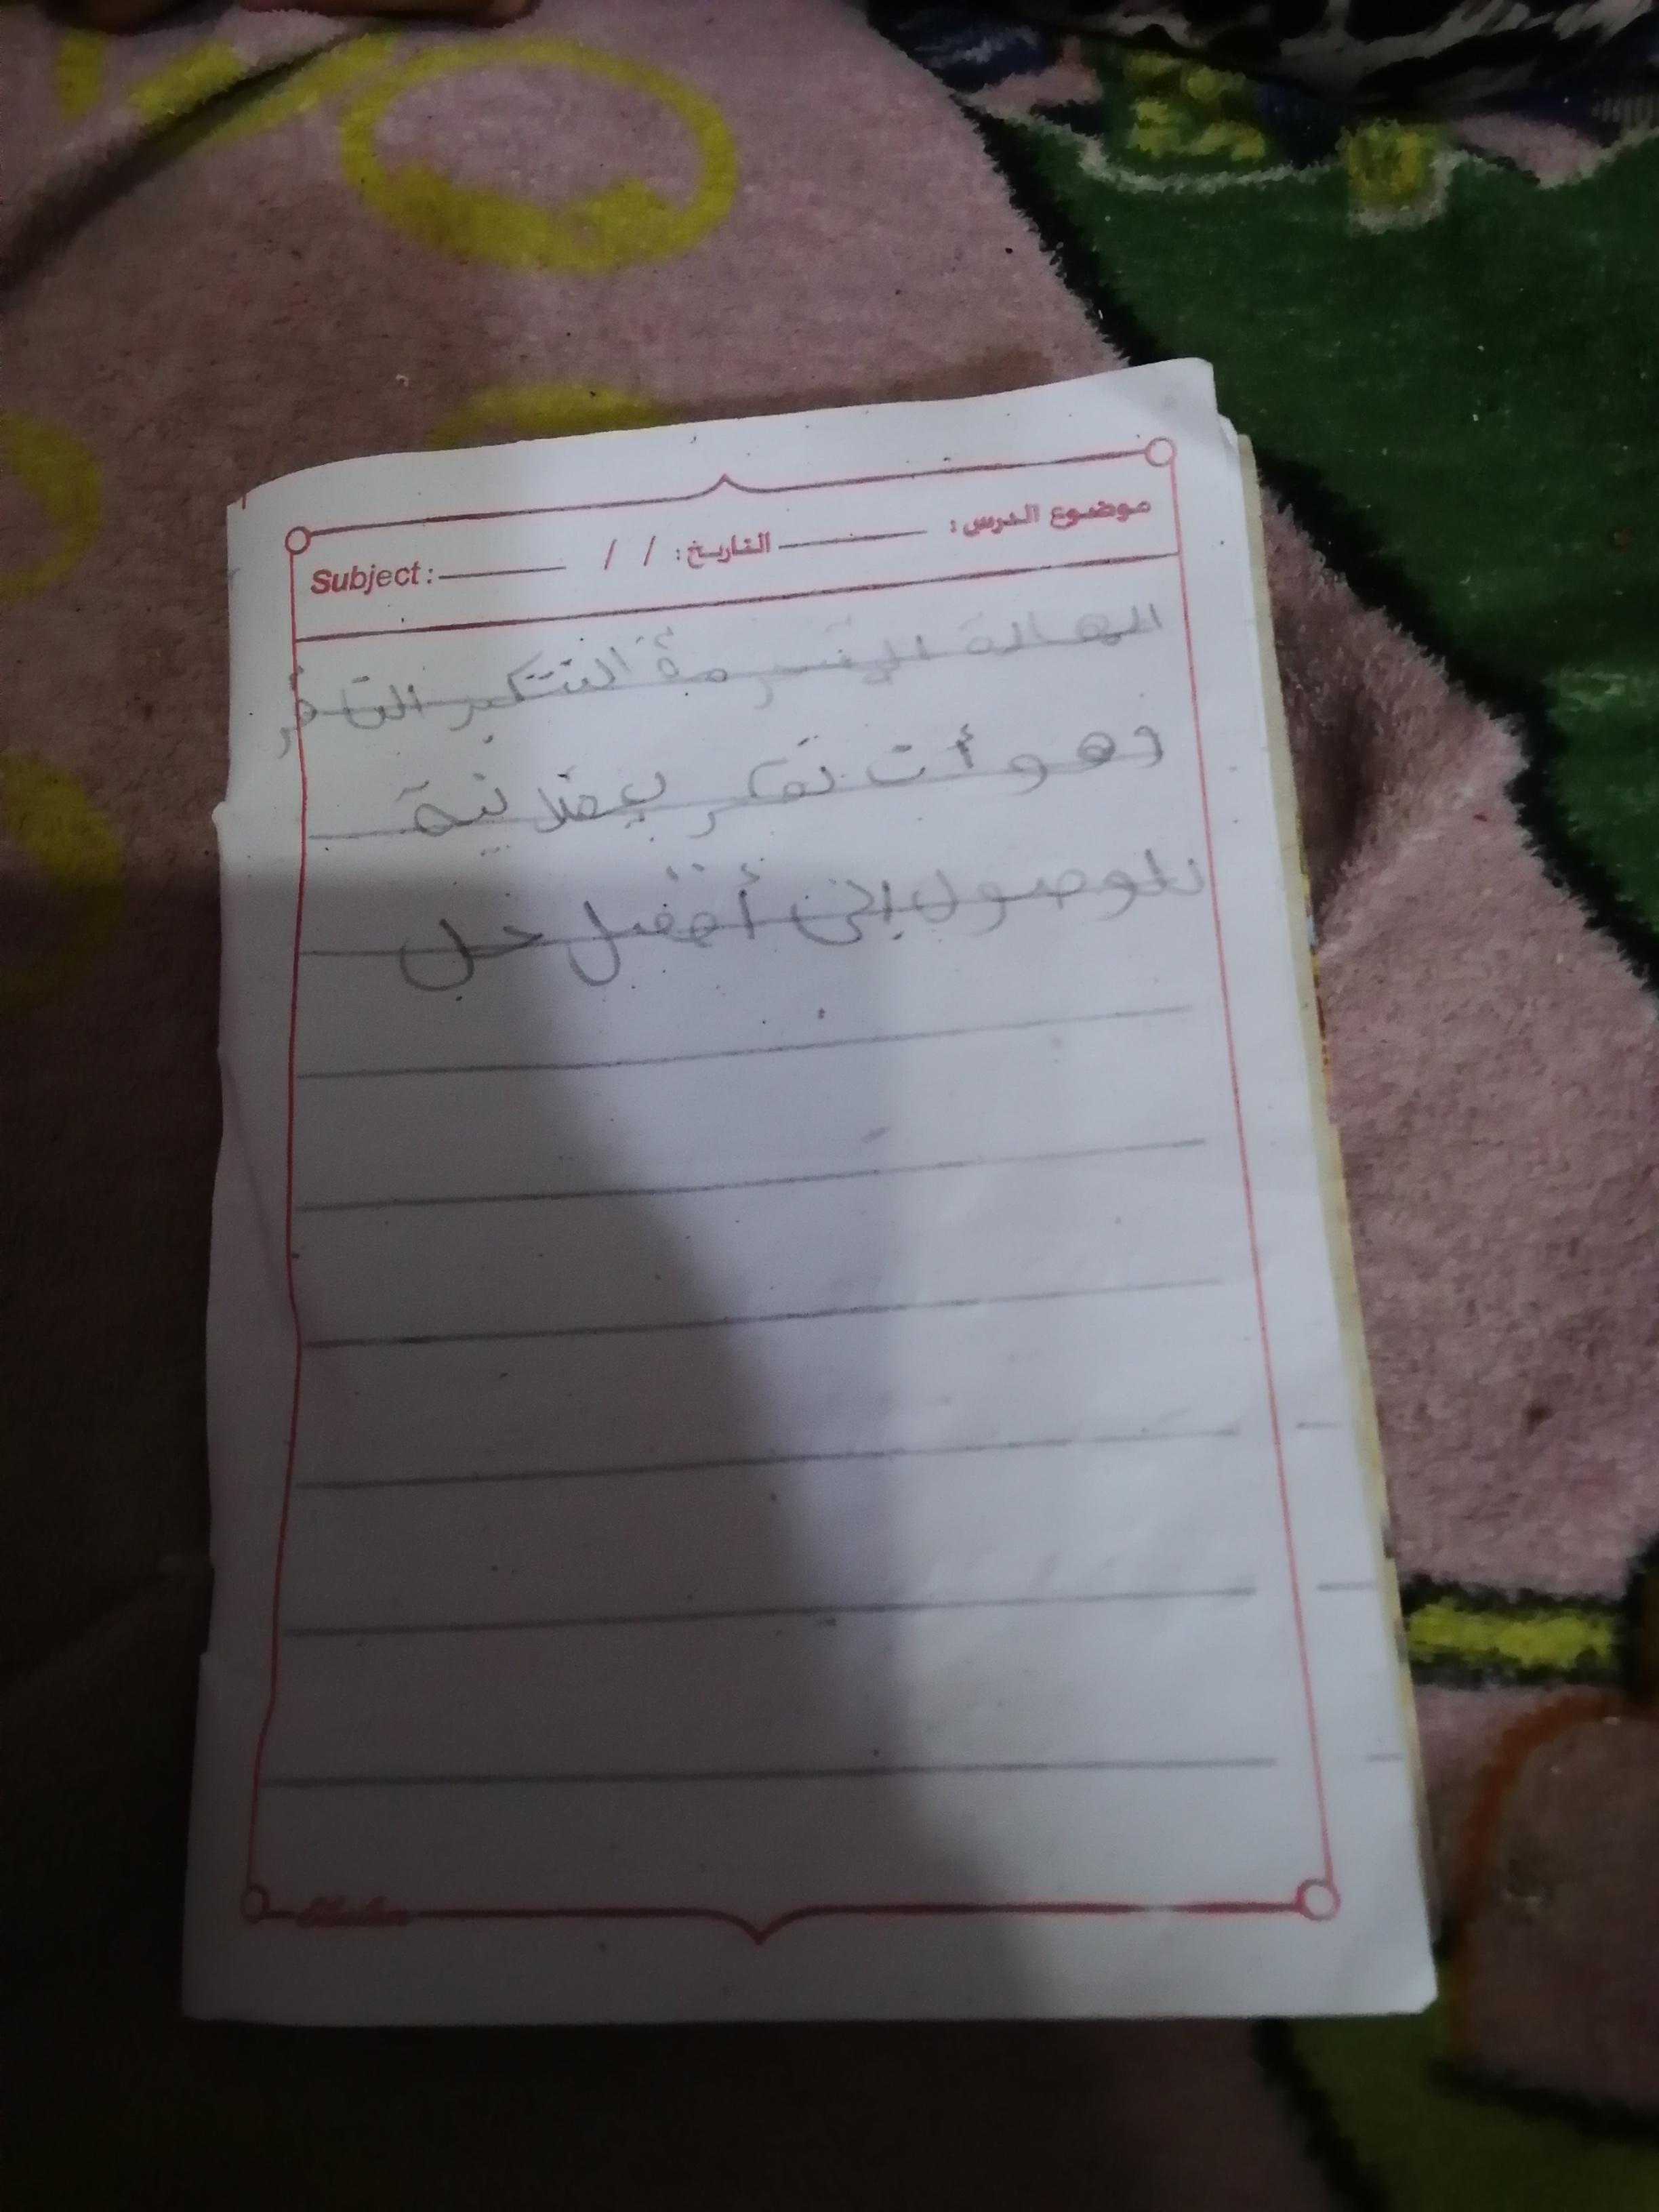 موضوع الدرس: التاريخ: / / Subject:
الهالة المترمة التتكير التاقر
وهو أن تفكر بعقلانية
للوصول إلى أفضل حل